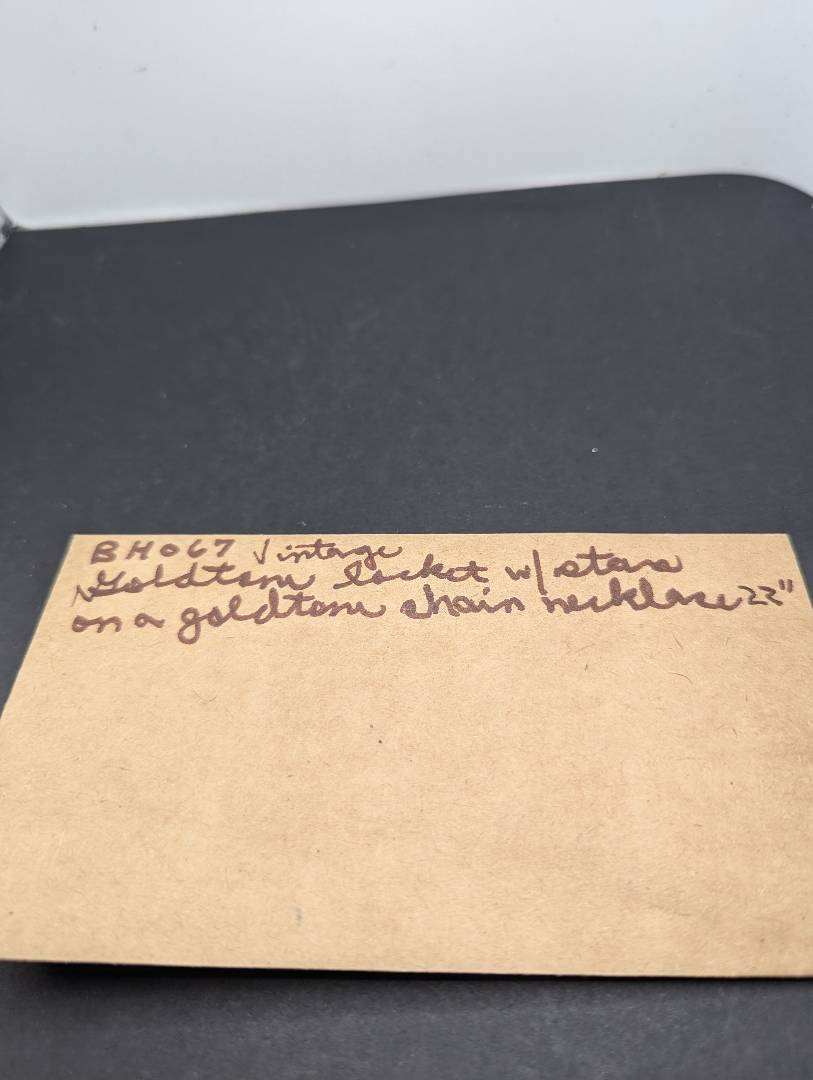 BH067 Vintage
Goldtone locket w/ stars
on a goldtone chain necklace 22"